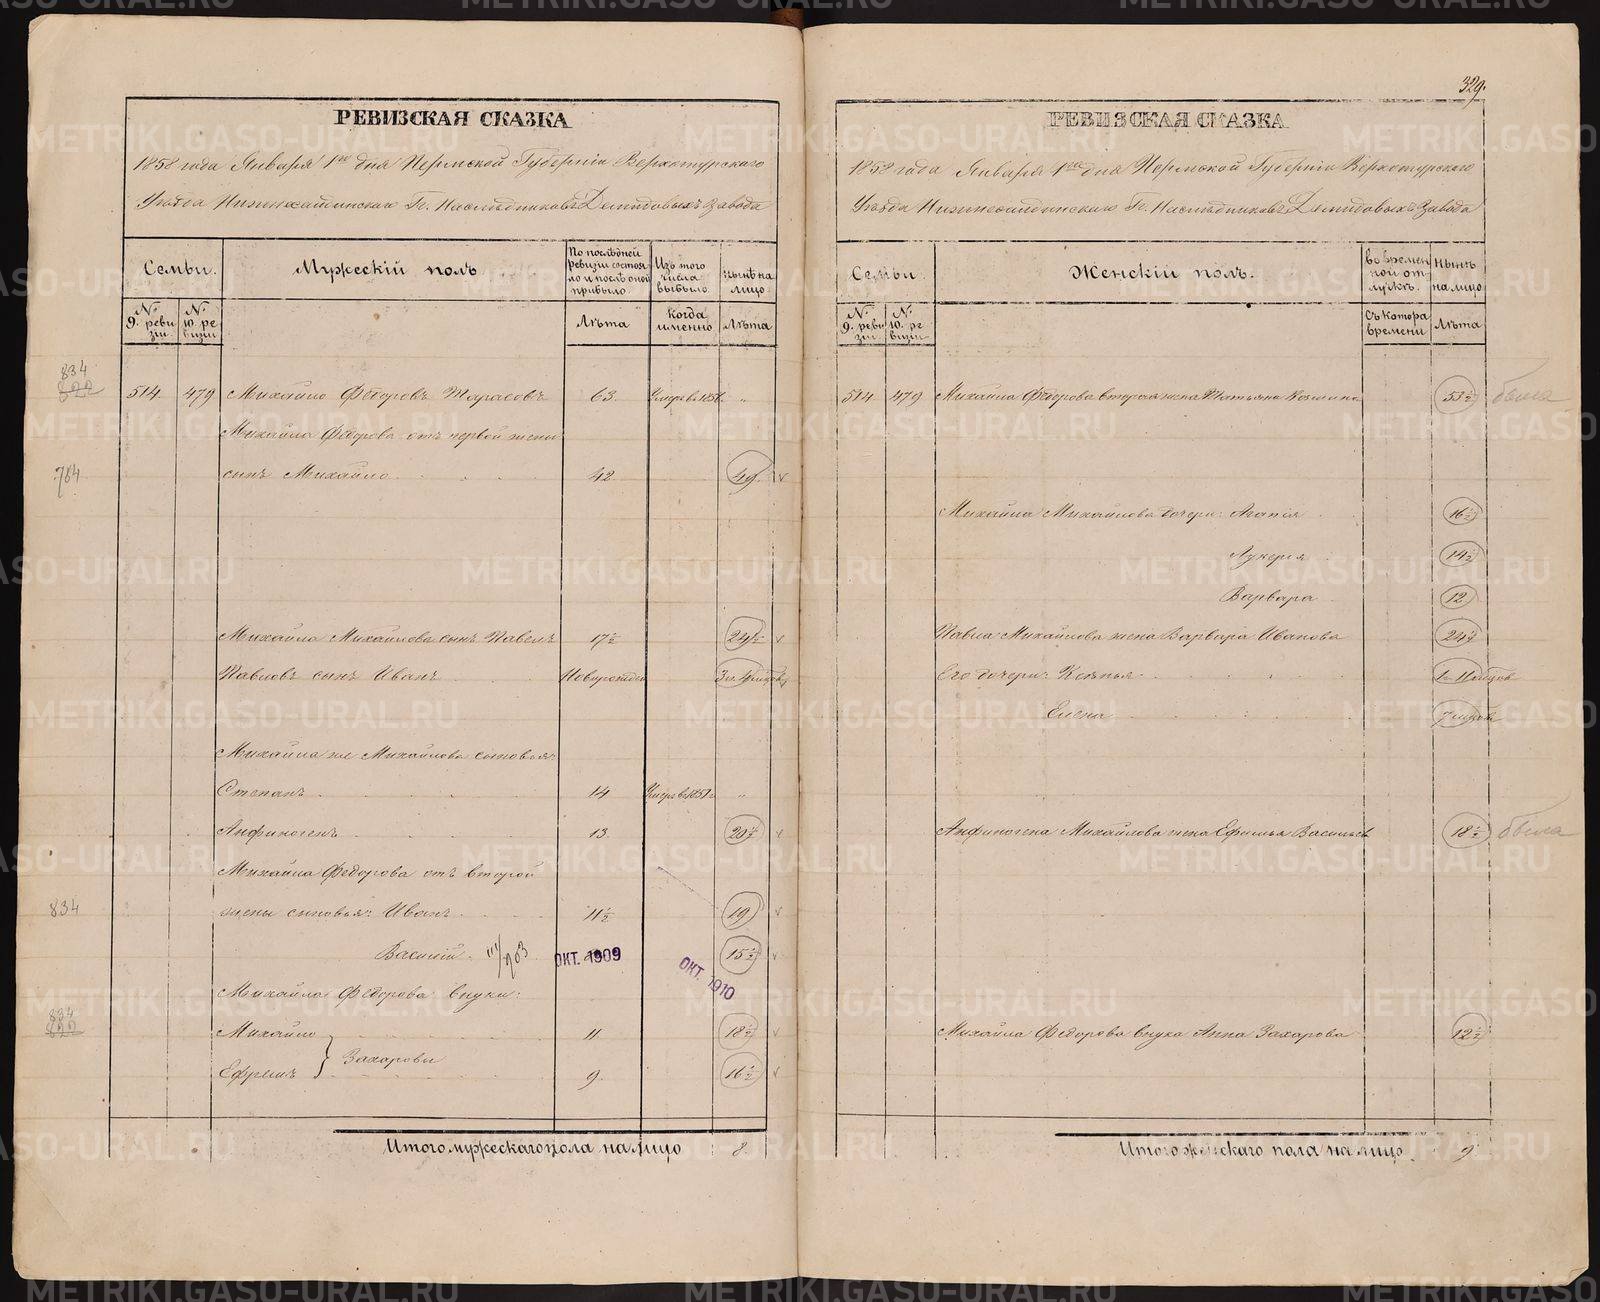 329.
РЕВИЗСКАЯ СКАЗКА
1858 года Января 1го дня Пермской Губернiи Верхотурскаго
Уѣзда Нижнесалдинскаго Гг. Наслѣдниковъ Демидовыхъ Завода
Семьи.
Мужескiй полъ
По послѣдней ревизiи состояло и послѣ оной прибыло.
Изъ того числа выбыло.
Нынѣ на лицо.
№ 9. ревизiи.
№ 10. ревизiи
Лѣта
Когда именно
Лѣта
834
822
514. 479 Михайло Ѳедоровъ Тарасовъ 63. Умеръ въ 1851. "
Михайла Ѳедорова отъ первой жены
764 сынъ Михайло 42 49
Михайла Михайлова сынъ Павелъ 17½ 24½
Павловъ сынъ Иванъ Новорожден 3 г. 4 мѣсцов
Михайла же Михайлова сыновья:
Степанъ 14 Умеръ въ 1851 г. "
Анфиногенъ 13. 20½
Михайла Ѳедорова отъ второй
834 жены сыновья: Иванъ 11½ 19
Василiй. III/903 ОКТ. 1909 15½
ОКТ. 1910
Михайла Ѳедорова внуки:
834
822
Михайло 11 18½
Захаровы
Ефремъ 9. 16½
Итого мужескаго пола на лицо 8.
РЕВИЗСКАЯ СКАЗКА
1858 года Января 1го дня Пермской Губернiи Верхотурскаго
Уѣзда Нижнесалдинскаго Гг. Наслѣдниковъ Демидовыхъ Завода
Семьи
Женскiй полъ.
Во временной отлучкѣ.
Нынѣ на лицо
№ 9. ревизiи.
№ 10. ревизiи
Съ котора времени
Лѣта
514. 479 Михайла Ѳедорова вторая жена Татьяна Козмина 53½ была
Михайла Михайлова дочери: Агапiя 16½
Лукерья 14½
Варвара 12
Павла Михайлова жена Варвара Иванова 24½
Его дочери: Ксенья 1 г. 11 мѣсцов
Елена 7 мѣсцов
Анфиногена Михайлова жена Ефимья Васильев 18½ была
Михайла Ѳедорова внука Анна Захарова 12½
Итого женскаго пола на лицо 9
METRIKI.GASO-URAL.RU